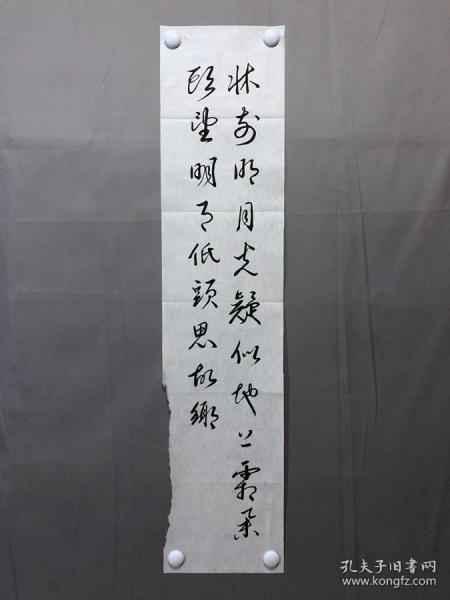 牀前明月光疑似地上霜举
头望明月低頭思故鄉
孔夫子旧书网
www.kongfz.com